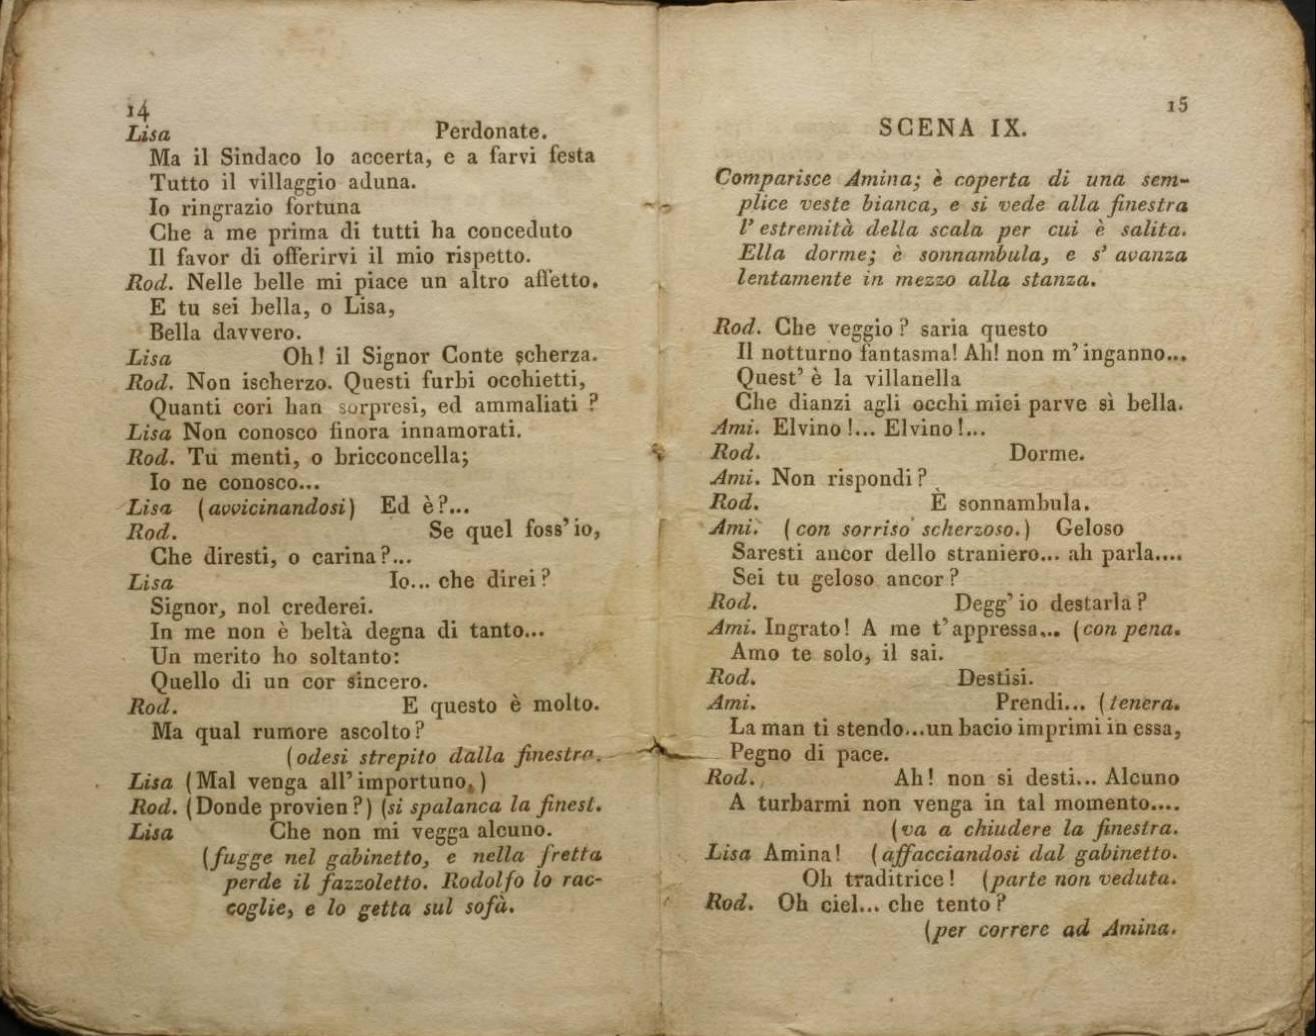 14
Lisa Perdonate.
Ma il Sindaco lo accerta, e a farvi festa
Tutto il villaggio aduna.
Io ringrazio fortuna
Che a me prima di tutti ha conceduto
Il favor di offerirvi il mio rispetto.
Rod. Nelle belle mi piace un altro affetto.
E tu sei bella, o Lisa,
Bella davvero.
Lisa Oh! il Signor Conte scherza.
Rod. Non ischerzo. Questi furbi occhietti,
Quanti cori han sorpresi, ed ammaliati ?
Lisa Non conosco finora innamorati.
Rod. Tu menti, o bricconcella;
Io ne conosco...
Lisa (avvicinandosi) Ed è?...
Rod. Se quel foss' io,
Che diresti, o carina?...
Lisa Io... che direi?
Signor, nol crederei.
In me non è beltà degna di tanto...
Un merito ho soltanto:
Quello di un cor sincero.
Rod. E questo è molto.
Ma qual rumore ascolto?
(odesi strepito dalla finestra.
Lisa (Mal venga all' importuno.)
Rod. (Donde provien?) (si spalanca la finest.
Lisa Che non mi vegga alcuno.
(fugge nel gabinetto, e nella fretta
perde il fazzoletto. Rodolfo lo rac-
coglie, e lo getta sul sofà.
15
SCENA IX.
Comparisce Amina; è coperta di una sem-
plice veste bianca, e si vede alla finestra
l' estremità della scala per cui è salita.
Ella dorme; è sonnambula, e s' avanza
lentamente in mezzo alla stanza.
Rod. Che veggio? saria questo
Il notturno fantasma! Ah! non m' inganno...
Quest' è la villanella
Che dianzi agli occhi miei parve sì bella.
Ami. Elvino!... Elvino!...
Rod. Dorme.
Ami. Non rispondi?
Rod. È sonnambula.
Ami. (con sorriso scherzoso.) Geloso
Saresti ancor dello straniero... ah parla....
Sei tu geloso ancor?
Rod. Degg' io destarla?
Ami. Ingrato! A me t' appressa... (con pena.
Amo te solo, il sai.
Rod. Destisi.
Ami. Prendi... (tenera.
La man ti stendo...un bacio imprimi in essa,
Pegno di pace.
Rod. Ah! non si desti... Alcuno
A turbarmi non venga in tal momento....
(va a chiudere la finestra.
Lisa Amina! (affacciandosi dal gabinetto.
Oh traditrice! (parte non veduta.
Rod. Oh ciel... che tento?
(per correre ad Amina.